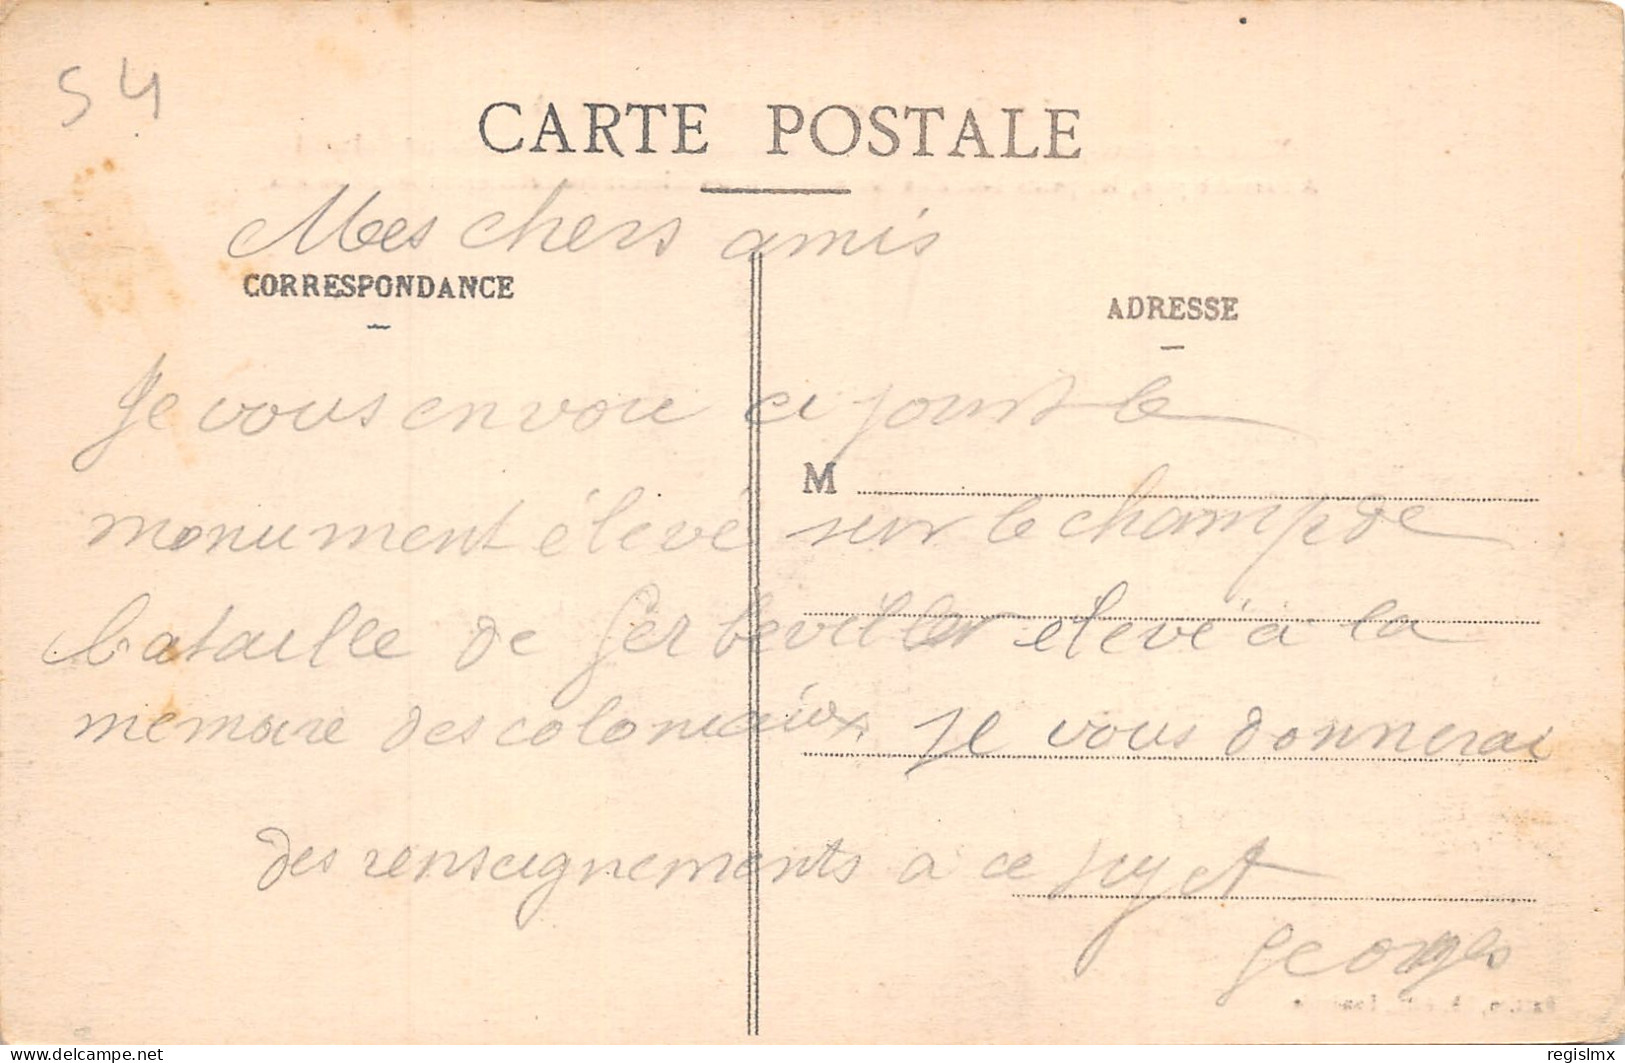 54
CARTE POSTALE
Mes chers amis
CORRESPONDANCE
ADRESSE
Je vous envoie ci joint le
M
monument élevé sur le champ de
bataille de Gerbeviller élevé à la
memoire des coloniaux. Je vous donnerai
des renseignements a ce sujet
Georges
regislmx